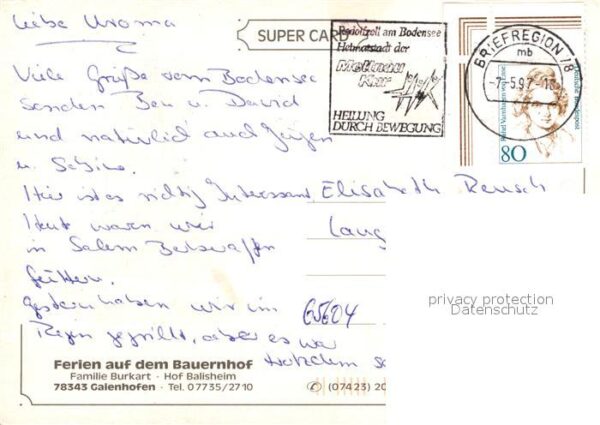 Liebe Uroma
SUPER CARD
Radolfzell am Bodensee
Heimatstadt der
Mettnau
Kur
HEILUNG
DURCH BEWEGUNG
BRIEFREGION 78
mb
-5.97-18
Rahel Varnhagen von Ense
Deutsche Bundespost
80
Viele Grüße vom Bodensee
senden Ben u. David
und natürlich auch Jürgen
u. Sabine.
Hier ist es richtig Interessant
Heut waren wir
in Salem
füttern.
Gestern haben wir im
Regen gegrillt, aber es war
trotzdem sc
Elisabeth Reusch
Lang
65604
privacy protection
Datenschutz
Ferien auf dem Bauernhof
Familie Burkart · Hof Balisheim
78343 Gaienhofen · Tel. 07735/2710
(07423) 20